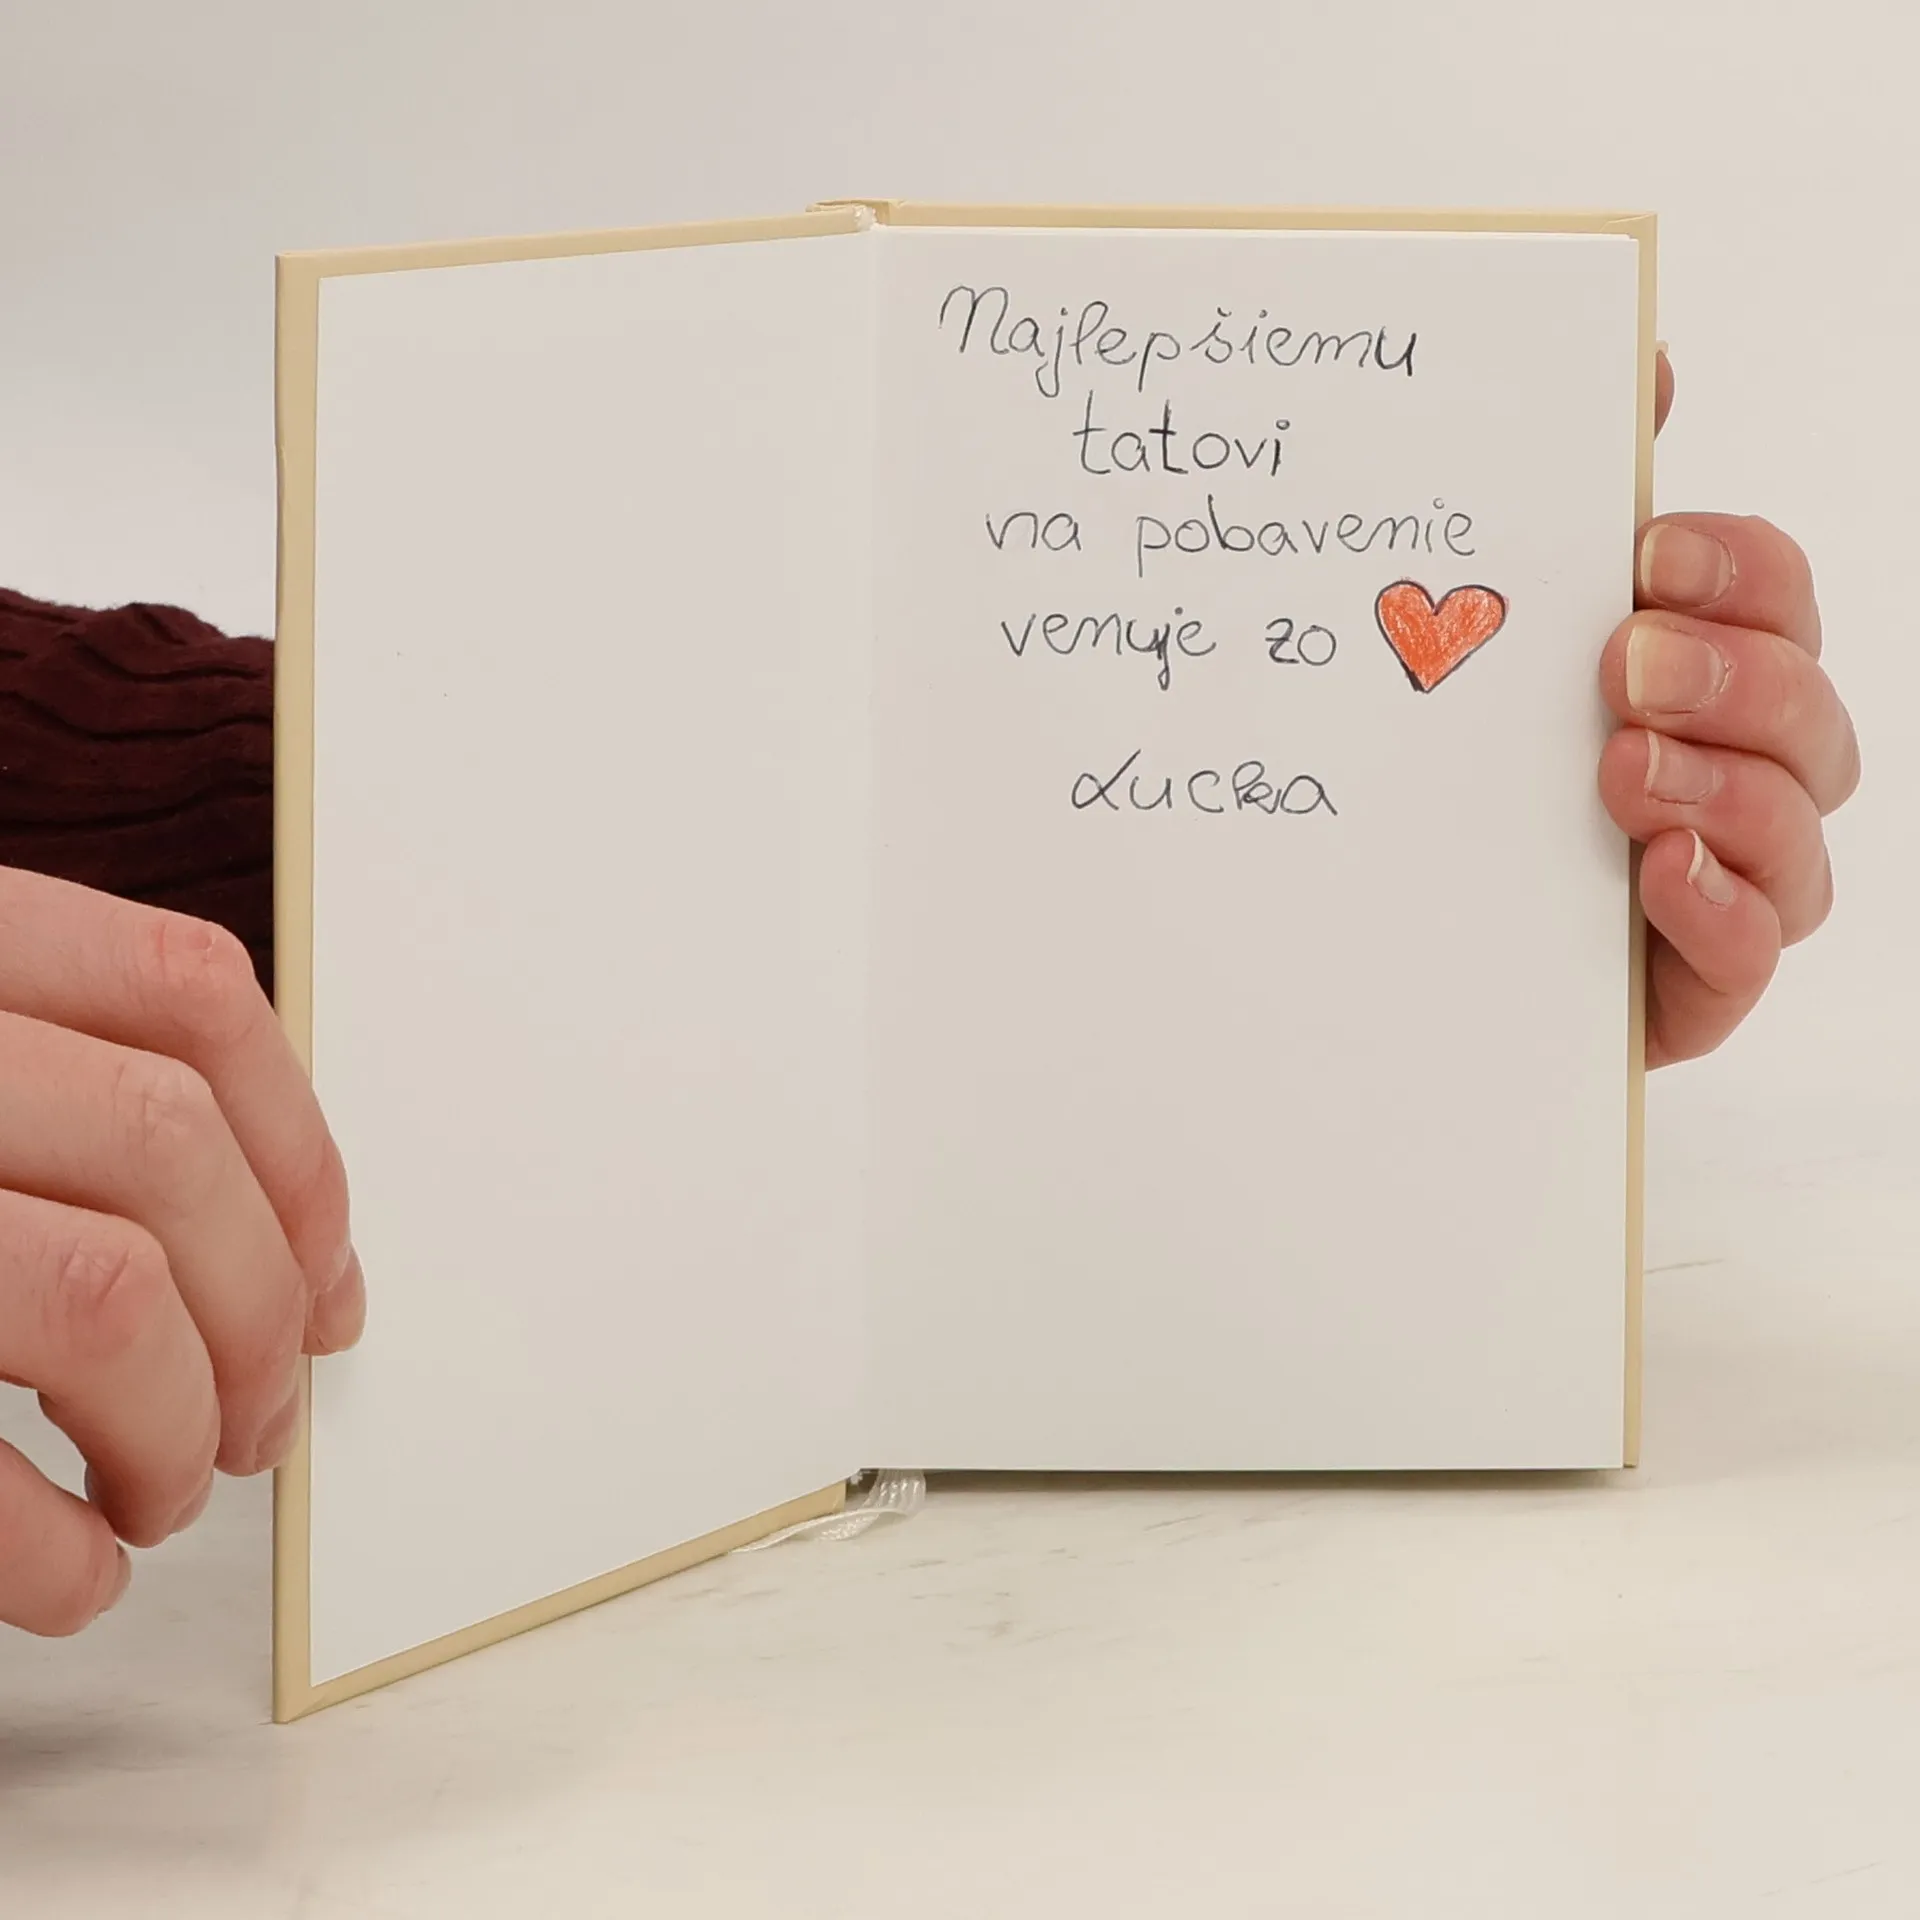 Najlepšiemu
tatovi
na pobavenie
venuje zo
Lucka